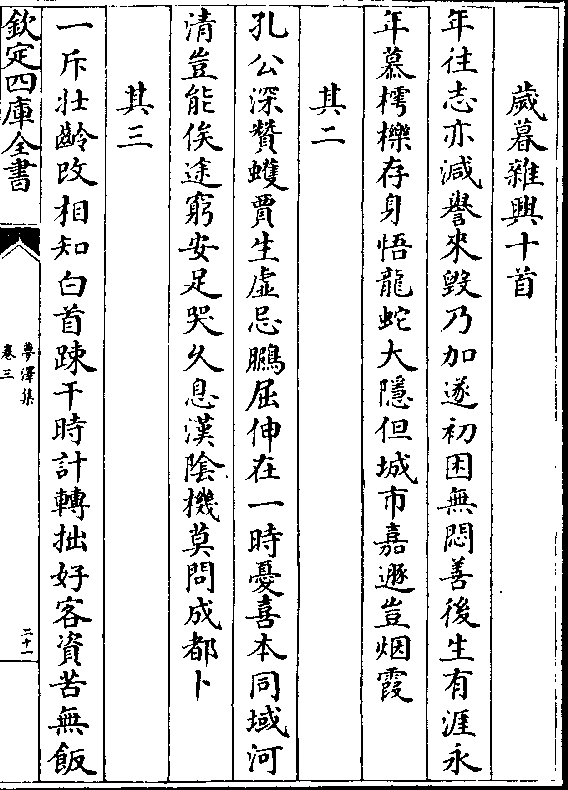 歲暮雜興十首
年往志亦減譽來毀乃加遂初困無悶善後生有涯永
年慕樗櫟存身悟龍蛇大隱但城市嘉遯豈烟霞
其二
孔公深贊蠖賈生虛忌鵩屈伸在一時憂喜本同域河
清豈能俟途窮安足哭久息漢陰機莫問成都卜
其三
一斥壯齡改相知白首踈干時計轉拙好客資苦無飯
欽定四庫全書
夢澤集
卷三
二十一